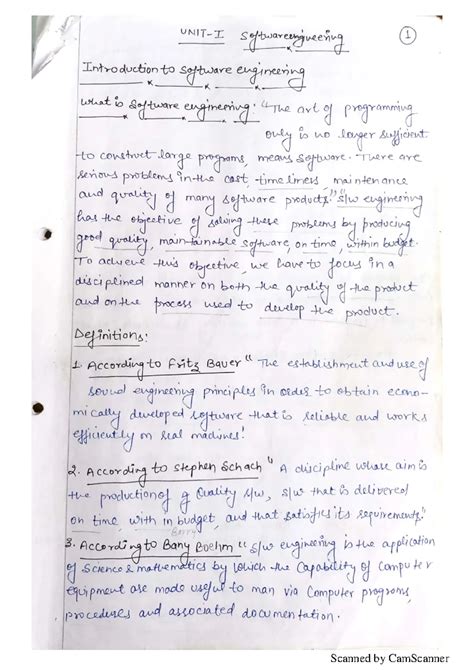 UNIT-I Softwareengineering
1
Introduction to Software engineering
What is Software engineering: "The art of programming
only is no longer sufficient
to construct large programs, means software. There are
serious problems in the cost, timeliness maintenance
and quality of many software products." "S/w engineering
has the objective of solving these problems by producing
good quality, maintainable software, on time, within budget.
To achieve this objective, we have to focus in a
disciplined manner on both the quality of the product
and on the process used to develop the product.
Definitions:
1. According to Fritz Bauer "The establishment and use of
sound engineering principles in order to obtain econo-
mically developed software that is reliable and works
efficiently on real machines."
2. According to Stephen Schach "A discipline whose aim is
the production of g Quality s/w, s/w that is delivered
on time, with in budget, and that satisfies its requirements."
Barry
3. According to Bany Boehm "S/w engineering is the application
of Science & mathematics by which the capability of Computer
equipment are made useful to man via Computer programs,
procedures and associated documentation.
Scanned by CamScanner